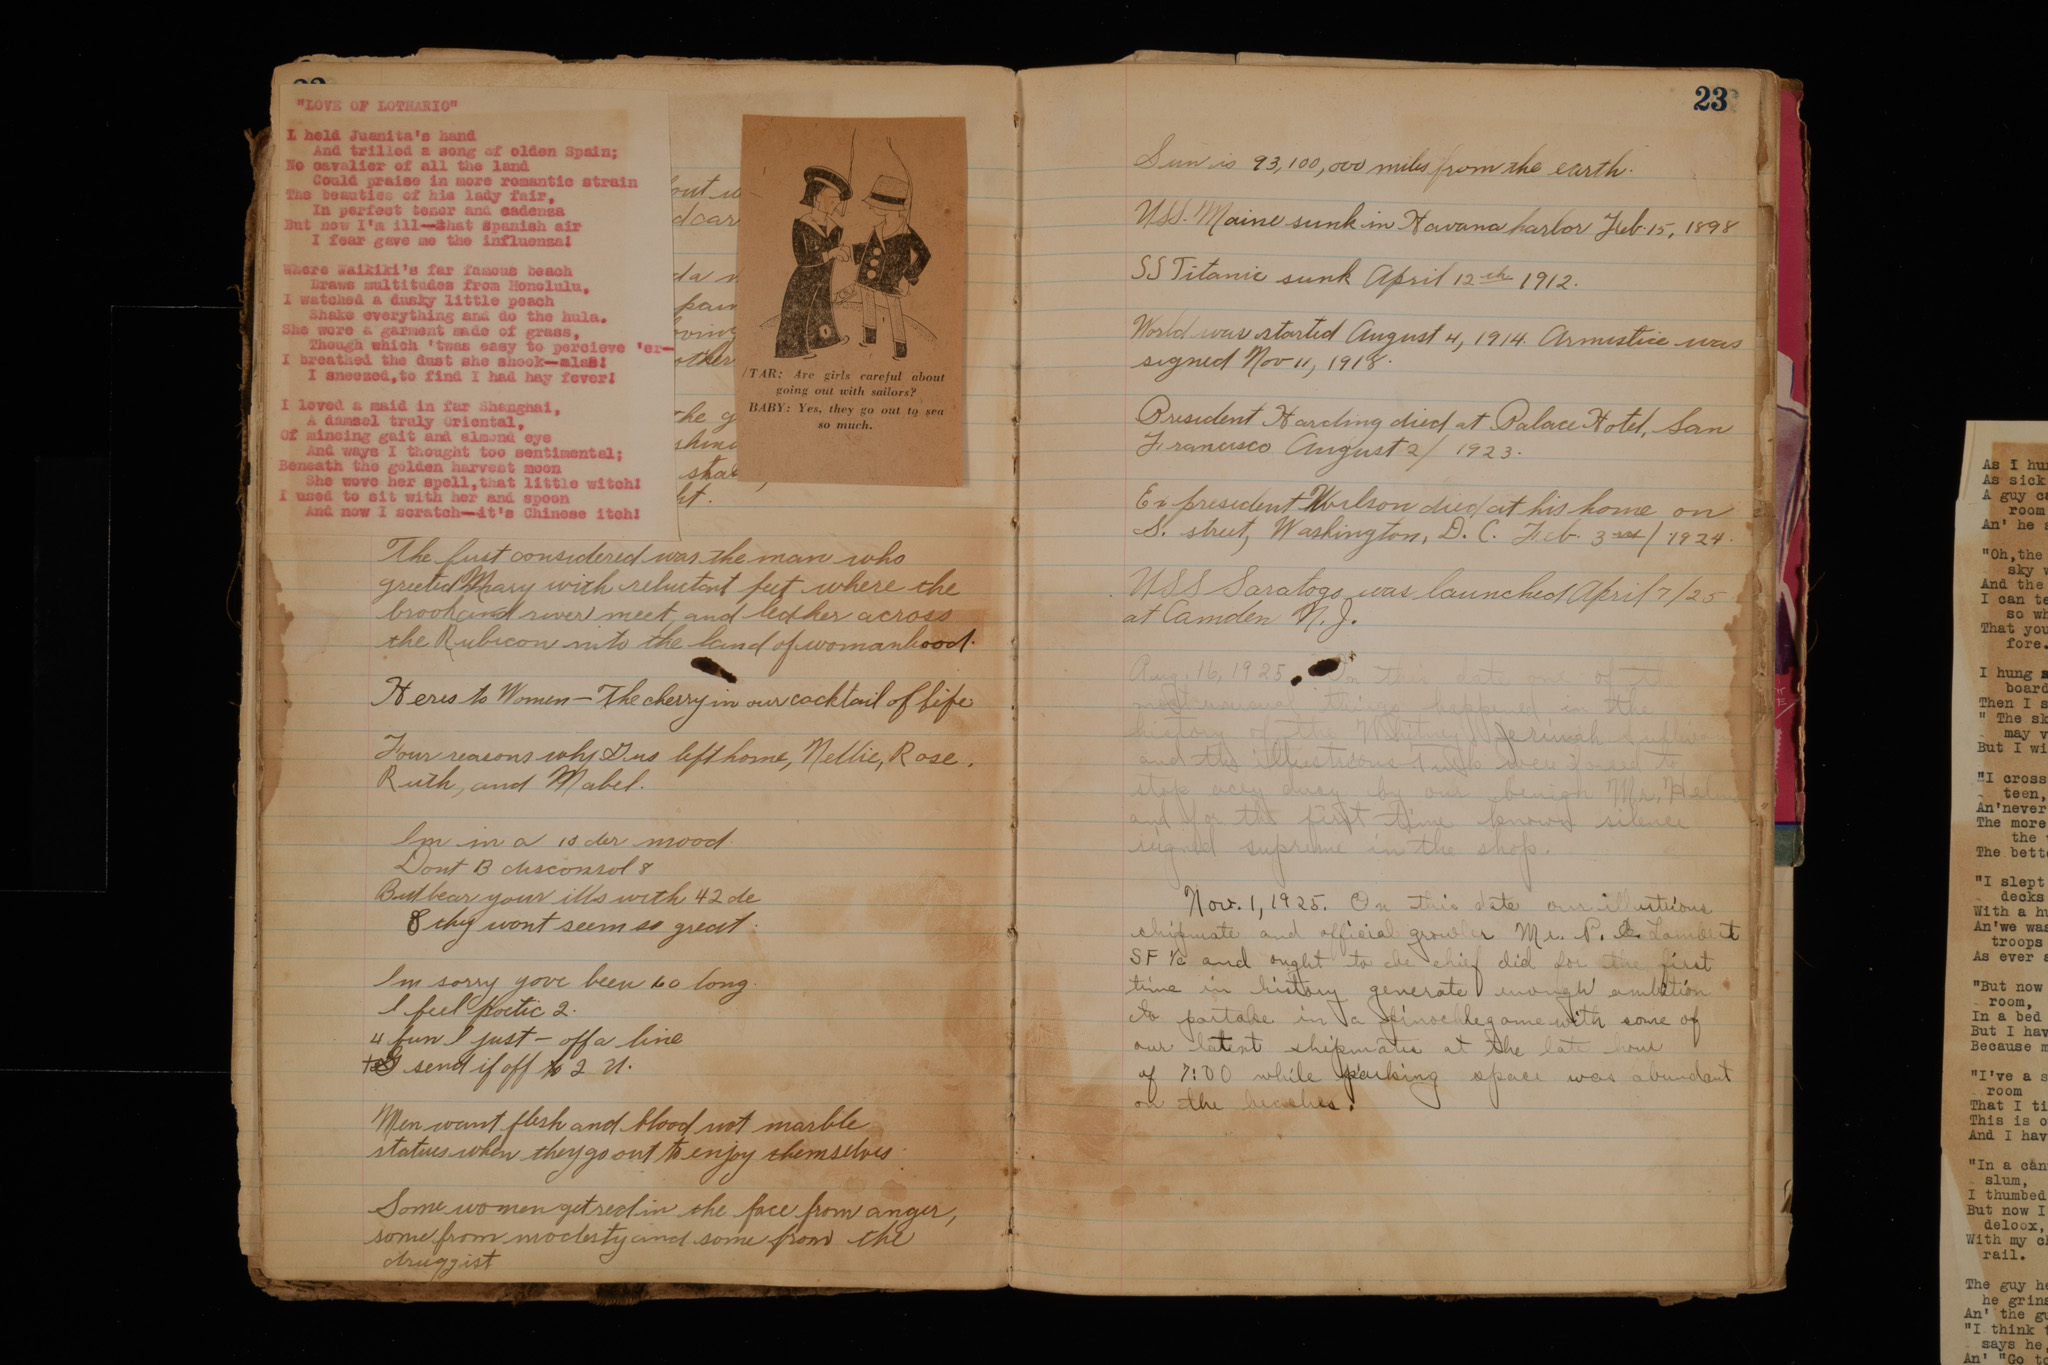 "LOVE OF LOTHARIO"
I held Juanita's hand
And trilled a song of olden Spain;
No cavalier of all the land
Could praise in more romantic strain
The beauties of his lady fair,
In perfect tenor and cadenza
But now I'm ill—that Spanish air
I fear gave me the influenza!
Where Waikiki's far famous beach
Draws multitudes from Honolulu,
I watched a dusky little peach
Shake everything and do the hula.
She wore a garment made of grass,
Though which 'twas easy to percieve 'er—
I breathed the dust she shook—alas!
I sneezed,to find I had hay fever!
I loved a maid in far Shanghai,
A damsel truly Oriental,
Of mincing gait and almond eye
And ways I thought too sentimental;
Beneath the golden harvest moon
She wove her spell,that little witch!
I used to sit with her and spoon
And now I scratch—it's Chinese itch!
TAR: Are girls careful about
going out with sailors?
BABY: Yes, they go out to sea
so much.
The first considered was the man who
greeted Mary with reluctant feet where the
brook and river meet, and led her across
the Rubicon into the land of womanhood.
Heres to Women – The cherry in our cocktail of life
Four reasons why Gus left home, Nellie, Rose,
Ruth, and Mabel.
Im in a 10 der mood
Dont B disconsol 8
But bear your ills with 42 de
& they wont seem so great.
Im sorry yove been so long.
I feel poetic 2.
4 fun I just – off a line
send if off to 2 U.
Men want flesh and blood not marble
statues when they go out to enjoy themselves
Some women get red in the face from anger,
some from modesty and some from the
druggist
23
Sun is 93,100,000 miles from the earth.
USS. Maine sunk in Havana harbor Feb. 15, 1898
SS Titanic sunk April 12th 1912.
World war started August 4, 1914. Armistice was
signed Nov 11, 1918.
President Harding died at Palace Hotel, San
Francisco August 2/ 1923.
Ex president Wilson died at his home on
S. street, Washington, D. C. Feb. 3rd/ 1924.
USS Saratoga was launched April 7/25
at Camden N. J.
Aug. 16, 1925. On this date one of the
most unusual things happened in the
history of the Whitney. Jerimah
and the illustrious were forced to
stop acey ducy by our benign Mr.
and for the first time known silence
reigned supreme in the shop.
Nov. 1, 1925. On this date our illustrious
shipmate and official growler Mr. P. Lambert
SF 1/c and ought to be chief did for the first
time in history generate enough ambition
to partake in a pinochle game with some of
our latent shipmates at the late hour
of 7:00 while parking space was abundant
on the benches.
As I
As sick
A guy
room
An' he
"Oh,the
sky
And the
I can
so
That you
fore.
I hung
board
Then I
" The
may
But I
"I cross
teen,
An'never
The more
the
The
"I slept
decks
With a
An'we was
troops
As ever
"But now
room,
In a bed
But I
Because
"I've a
room
That I
This is
And I
"In a
slum,
I thumbed
But now I
deloox,
With my
rail.
The guy
he
An' the
"I think
says he,
An' "Go